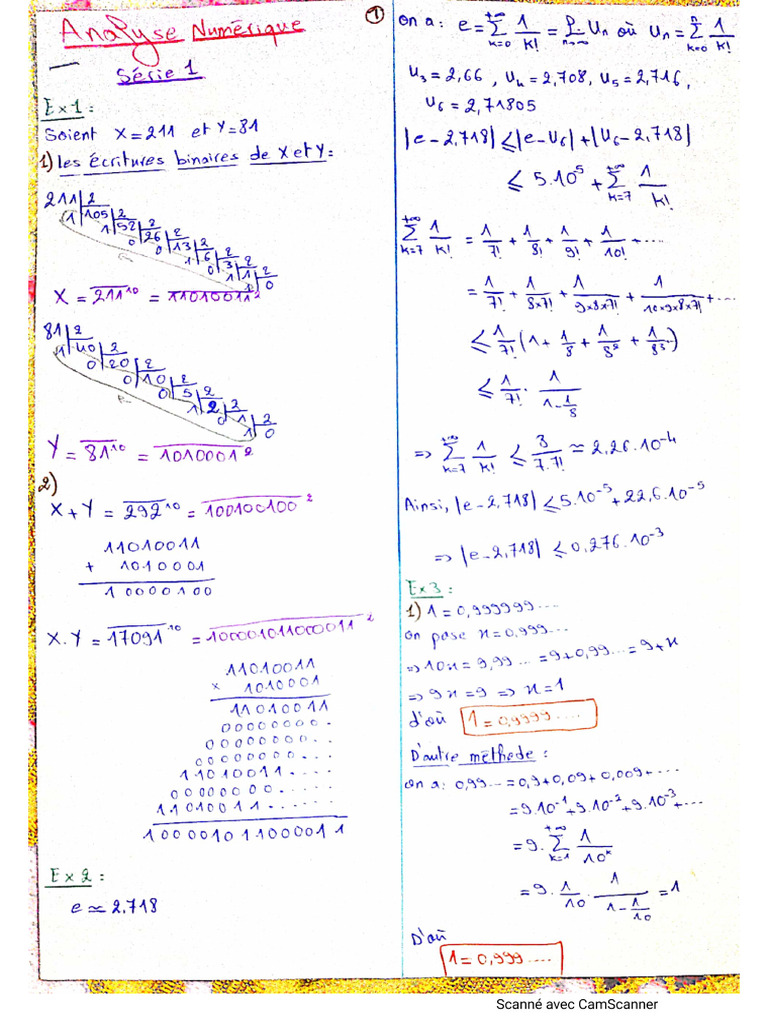 Analyse Numérique
Série 1
Ex 1 :
Soient X=211 et Y=81
1) les écritures binaires de X et Y :
211 | 2
1 | 105 | 2
1 | 52 | 2
0 | 26 | 2
0 | 13 | 2
1 | 6 | 2
0 | 3 | 2
1 | 1 | 2
1 | 0
X = 211¹⁰ = 11010011²
81 | 2
1 | 40 | 2
0 | 20 | 2
0 | 10 | 2
0 | 5 | 2
1 | 2 | 2
0 | 1 | 2
1 | 0
Y = 81¹⁰ = 1010001²
2)
X + Y = 292¹⁰ = 100100100²
11010011
+ 1010001
10000100
X.Y = 17091¹⁰ = 100001011000011²
11010011
× 1010001
11010011
0000000.
0000000..
0000000...
11010011....
0000000.....
11010011......
100001011000011
Ex 2 :
e ≃ 2.718
①
on a : e = Σ_{k=0}^{+∞} 1/k! = lim_{n→∞} Un où Un = Σ_{k=0}^{n} 1/k!
U3 = 2,66, U4 = 2,708, U5 = 2,716,
U6 = 2,71805
|e - 2,718| ≤ |e - U6| + |U6 - 2,718|
≤ 5.10⁵ + Σ_{k=7}^{+∞} 1/k!
Σ_{k=7}^{+∞} 1/k! = 1/7! + 1/8! + 1/9! + 1/10! + ....
= 1/7! + 1/8×7! + 1/9×8×7! + 1/10×9×8×7! + ...
≤ 1/7! (1 + 1/8 + 1/8² + 1/8³)
≤ 1/7! . 1/(1 - 1/8)
=> Σ_{k=7}^{+∞} 1/k! ≤ 8/7.7! ≃ 2,26.10⁻⁴
Ainsi, |e - 2,718| ≤ 5.10⁻⁵ + 22,6.10⁻⁵
=> |e - 2,718| ≤ 0,276.10⁻³
Ex 3 :
1) 1 = 0,999999 ....
on pose x = 0,999...
=> 10x = 9,99 ... = 9 + 0,99... = 9 + x
=> 9x = 9 => x = 1
d'où 1 = 0,9999 ....
D'autre méthode :
on a : 0,99 ... = 0,9 + 0,09 + 0,009 + ...
= 9.10⁻¹ + 9.10⁻² + 9.10⁻³ + ...
= 9. Σ_{k=1}^{+∞} 1/10^k
= 9. 1/10 . 1/(1 - 1/10) = 1
D'où
1 = 0,999 ....
Scanné avec CamScanner